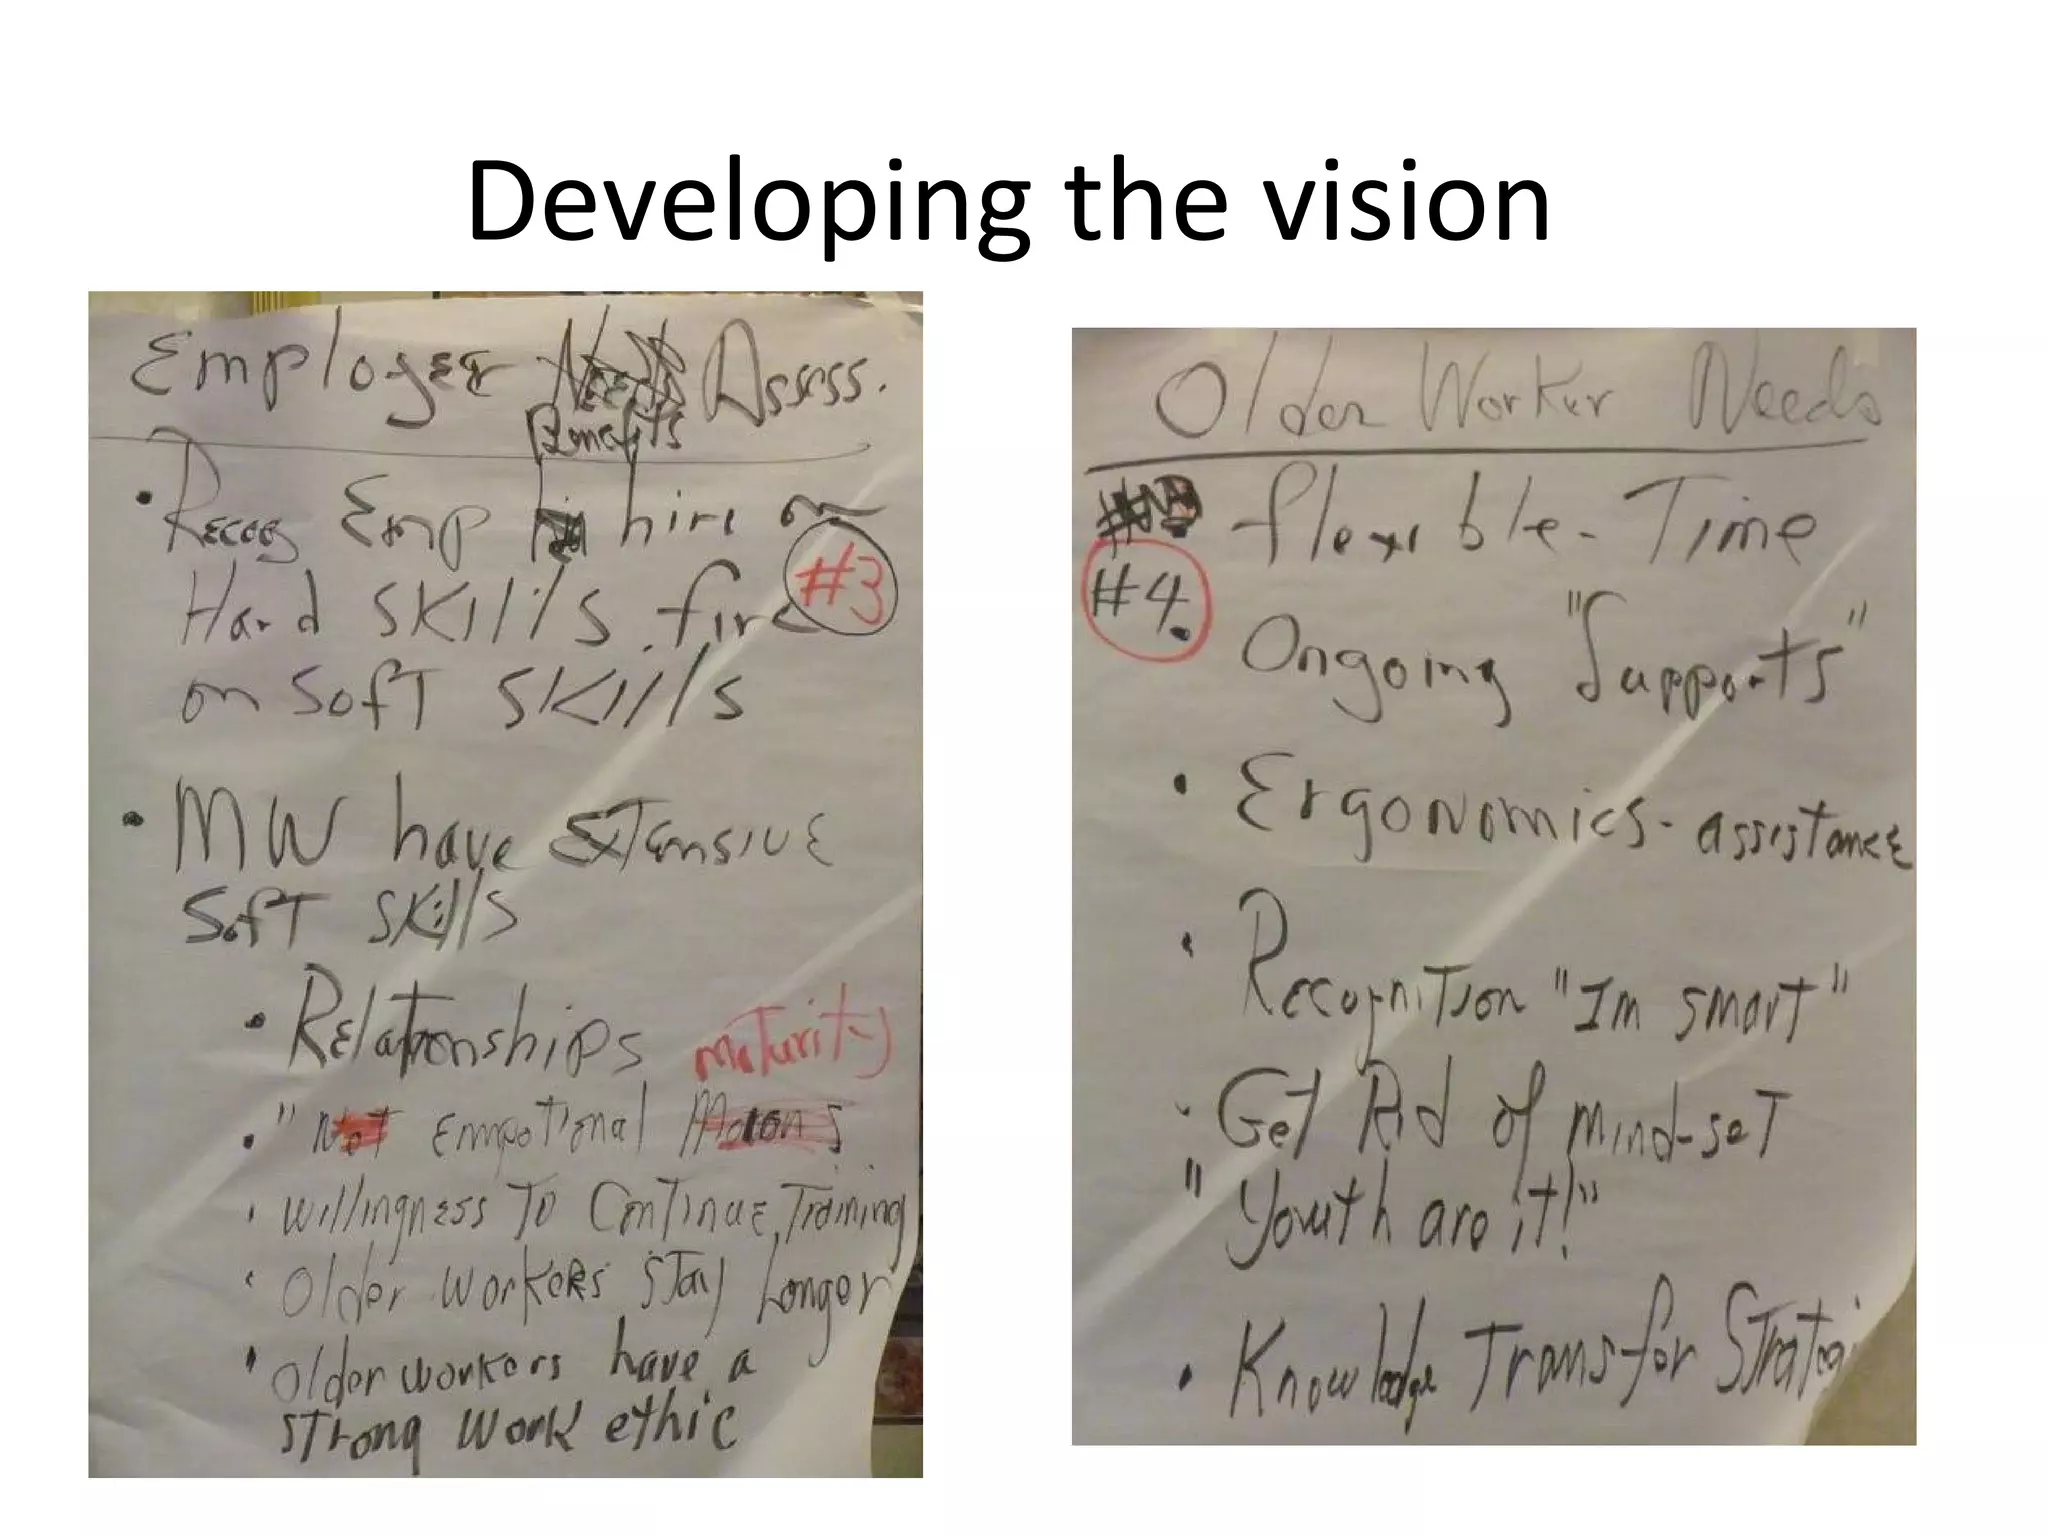 Developing the vision
Employer Needs Assess.
Benefits
• Recog Emp hire on
#3
Hard skills fire
on soft skills
• MW have Extensive
Soft skills
• Relationships maturity
• "Not Empotional Morons
• Willingness To Continue Training
• Older workers stay Longer
• older workers have a
strong work ethic
Older Worker Needs
Flexible-Time
#4
• Ongoing "Supports"
• Ergonomics-assistance
• Recognition "Im smart"
• Get Rid of mind-set
"Youth are it!"
• Knowledge Transfor